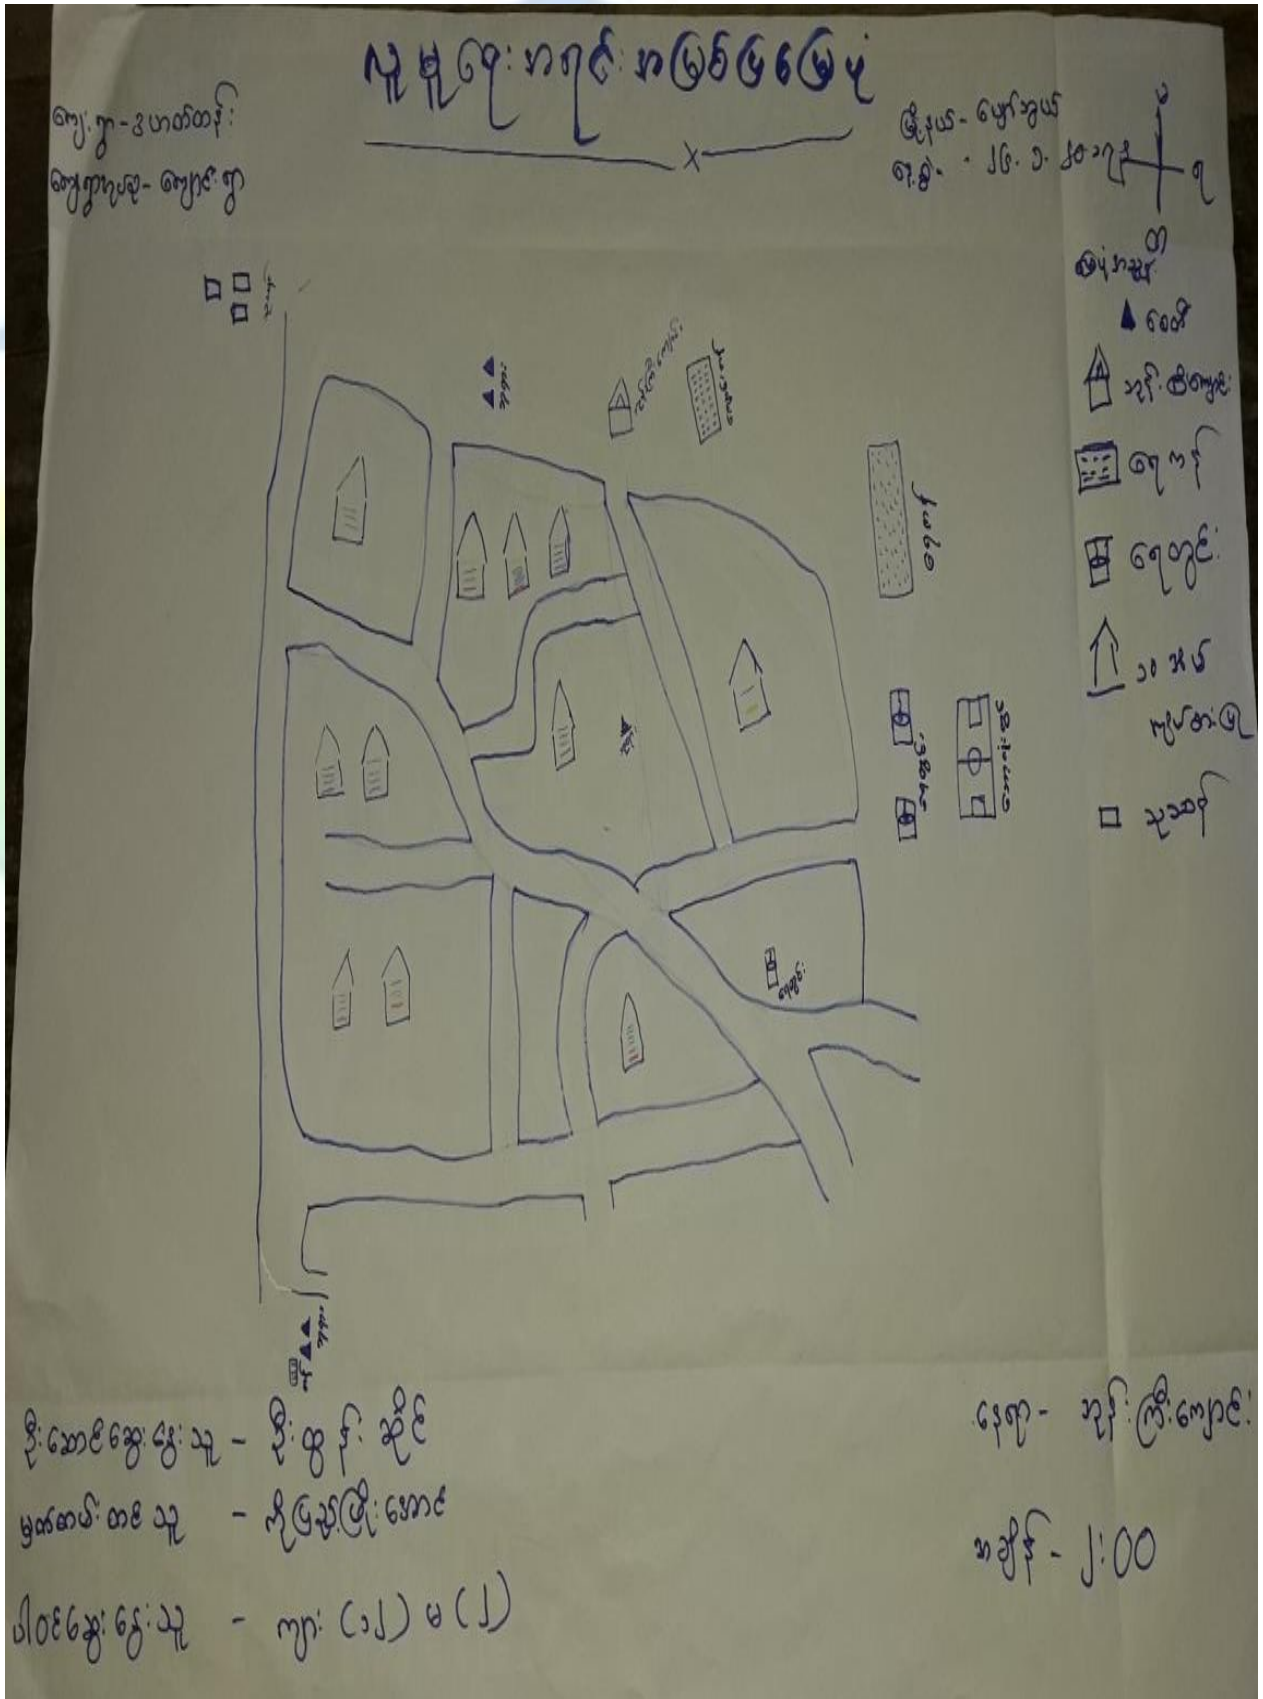 လူမှုရေးအရင်းအမြစ်ပြမြေပုံ
ကျေးရွာ - ဒဟတ်တန်း
ကျေးရွာအုပ်စု - ကျောင်းရွာ
မြို့နယ် - ပျော်ဘွယ်
ရ
တ
မြေပုံအညွှန်း
စေတီ
ဘုန်းကြီးကျောင်း
ရေကန်
ရေတွင်း
၁၀ အိမ်
ကိုယ်စားပြု
သုသာန်
ရေကန်
ရေတွင်း
ဦးဆောင်ဆွေးနွေးသူ - ဦးထွန်းဆိုင်
မှတ်တမ်းတင်သူ - ကိုပြည့်ဖြိုးအောင်
ပါဝင်ဆွေးနွေးသူ - ကျား (၁၂) မ (၂)
နေရာ - ဘုန်းကြီးကျောင်း
အချိန် - ၂:၀၀